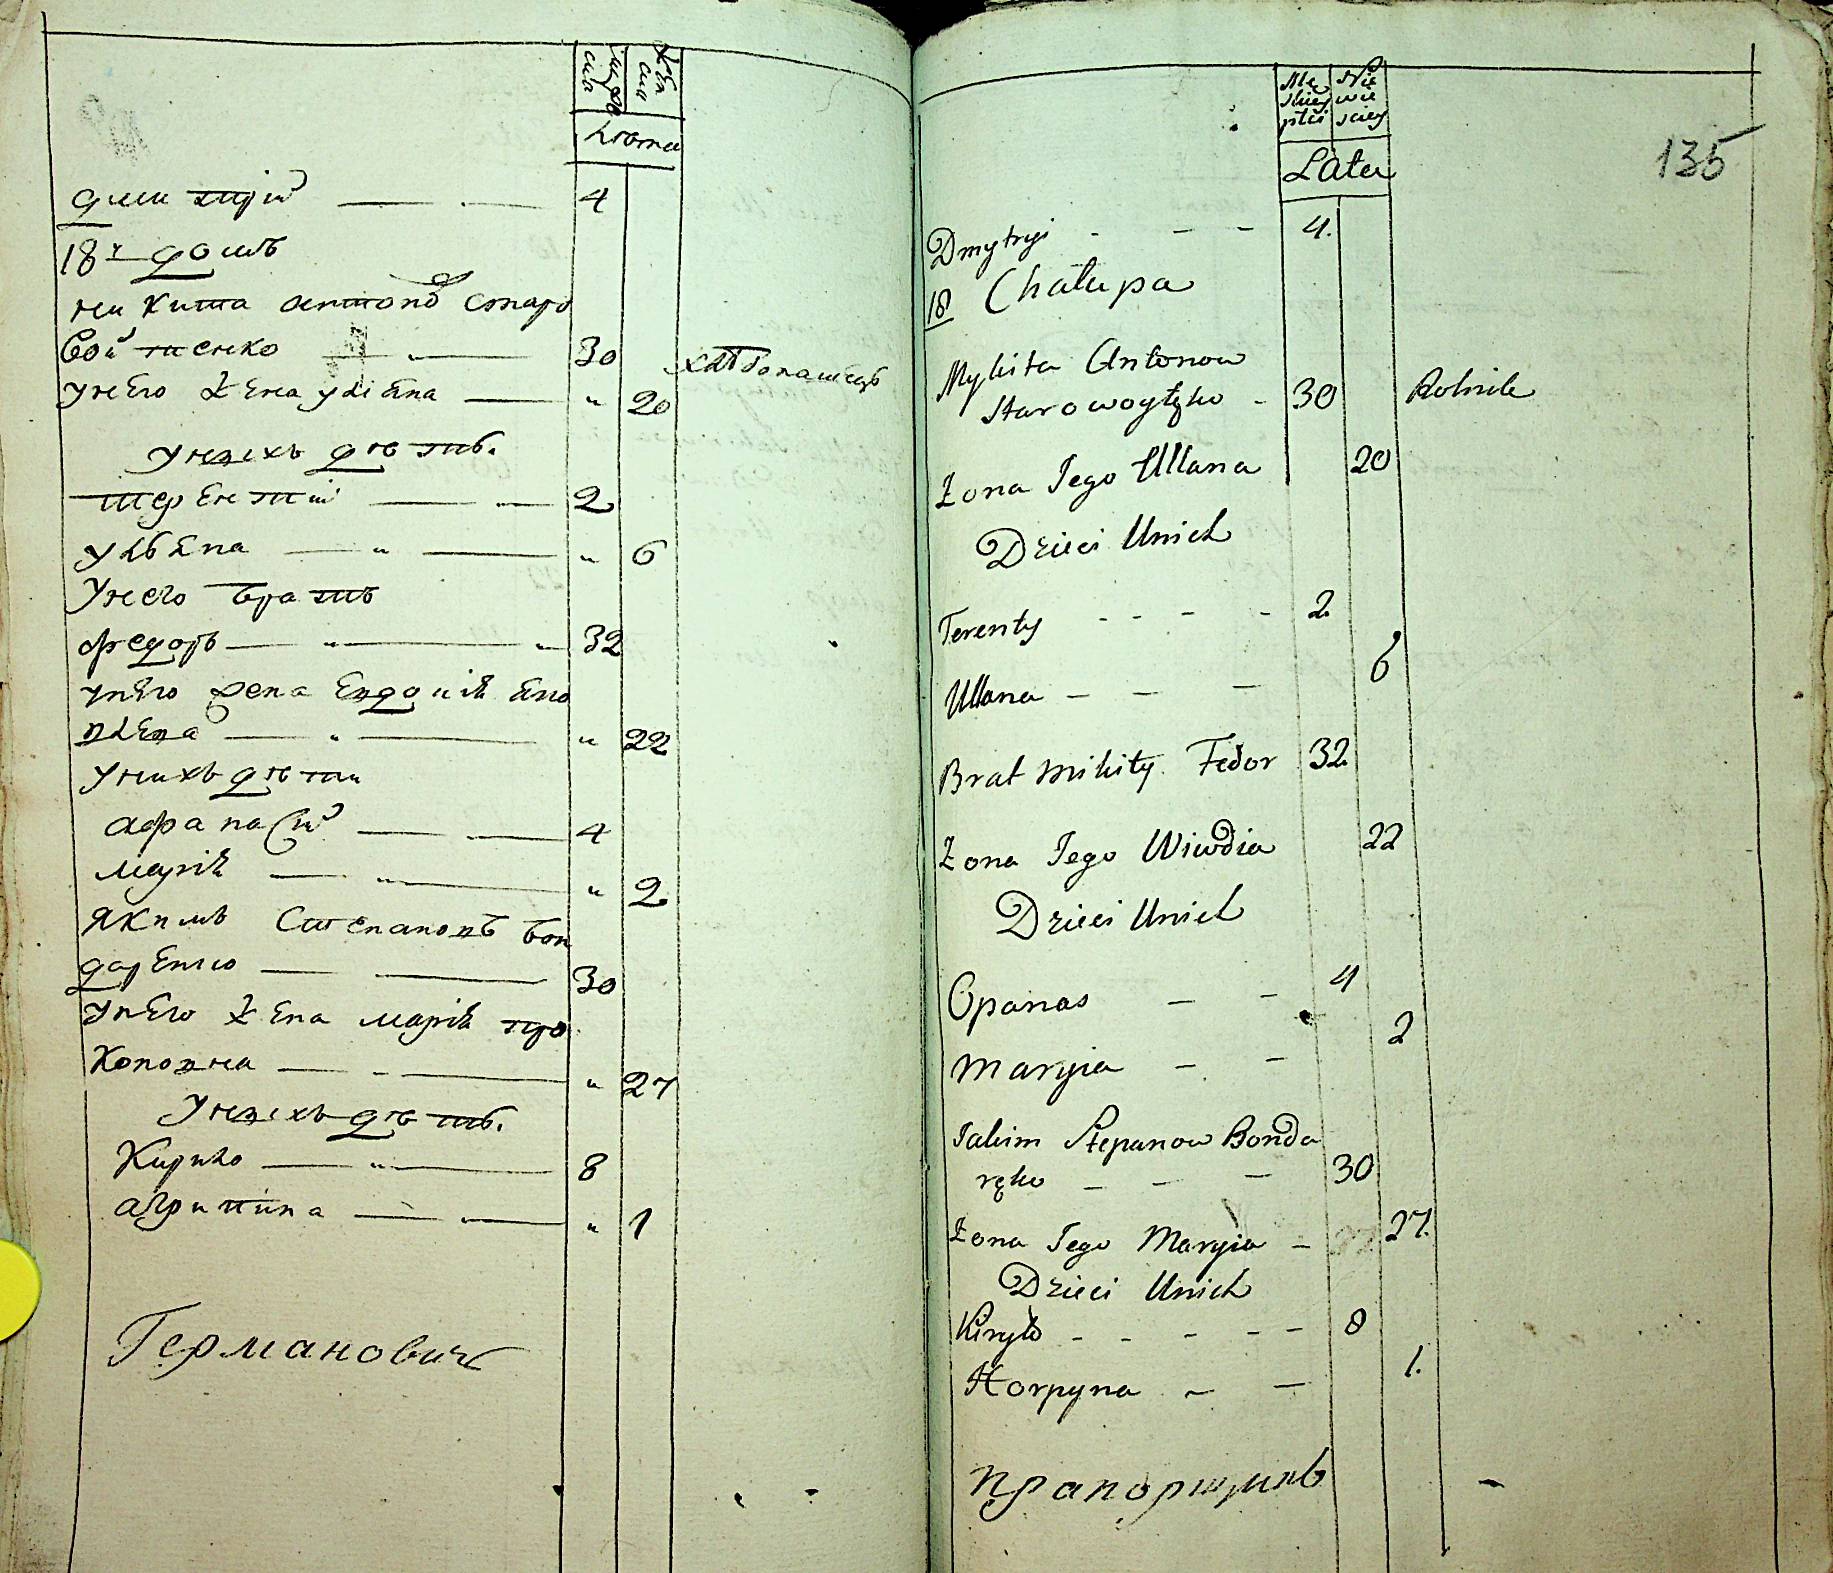 Лѣта
дмитрій 4
18й домъ
никита антоновъ старо
войтенко 30 хлѣбопашецъ
унего жена улiяна " 20
унихъ дѣти.
терентій 2
улiяна " 6
Унего братъ
федоръ 32
унего жена Евдокія
" 22
унихъ дѣти
афанасій 4
марія " 2
якимъ Степановъ бон
даренко 30
унего жена марія про
копова " 27
Унихъ дѣти.
Кирило 8
агрипина " 1
Германовичъ
135
Męskiej płci
Niewieściej
Lata
Dmytryi 4.
18 Chałupa
Mykita Antonow
Starowoytęko 30 Rolnik
Żona Jego Ullana 20
Dzieci Unich
Terenty 2
Ullana 6
Brat Mikity Fedor 32
Żona Jego Wiwdia 22
Dzieci Unich
Opanas 4
Maryia 2
Jakim Stepanow Bonda
ręko 30
Żona Jego Maryia 27.
Dzieci Unich
Kiryło 8
Horpyna 1.
Прапорщикъ